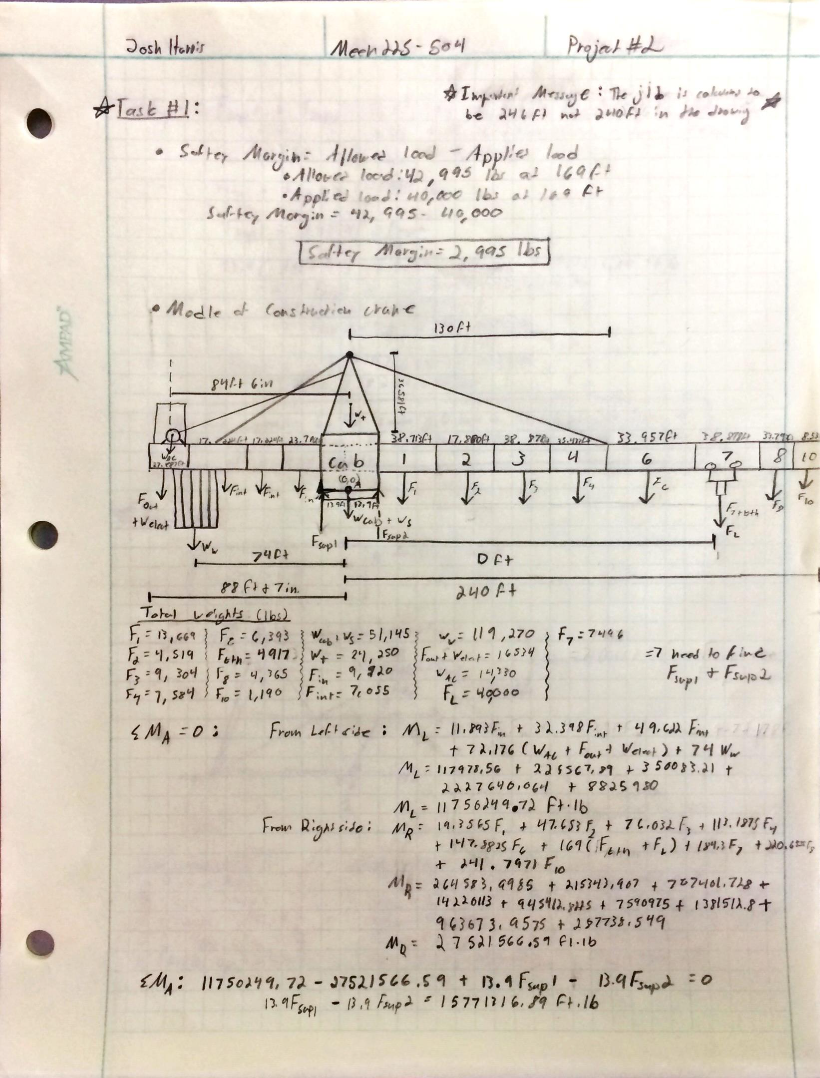 Josh Harris Meen 225-504 Project #2
☆ Important Message: The jib is calculated to ☆
be 246 ft not 240ft in the drawing
☆ Task #1:
• Saftey Margin = Allowed load - Applied load
• Allowed load: 42,995 lbs at 169ft
• Applied load: 40,000 lbs at 169 ft
Saftey Margin = 42,995 - 40,000
Saftey Margin = 2,995 lbs
AMPAD
• Modle of Construction crane
130ft
84ft 6in
Wt
23.7
38.713ft 17.880ft 38.878ft 33.957ft
Cab 1 2 3 4 6 7 8 10
(0,0) A
13.9ft 13.9ft
Fout + Welnt
Fint Fint Fin
Wcab + Ws
F1 F2 F3 F4 F6 F7+bth F8 F10
FL
Ww Fsup1 Fsup2
74ft D ft
88 ft + 7in 240 ft
Total weights (lbs)
F1 = 13,669 F6 = 6,393 Wcab + Ws = 51,145 Ww = 119,270 F7 = 7496
F2 = 4,519 Fbth = 4917 Wt = 24,250 Fout + Welnt = 16534 => need to find
F3 = 9,304 F8 = 4,365 Fin = 9,920 WAC = 14,330 Fsup1 + Fsup2
F4 = 7,584 F10 = 1,190 Fint = 7,055 FL = 40000
ΣMA = 0: From Left side: ML = 11.893Fin + 32.398Fint + 49.622 Fint
+ 72.176 (WAC + Fout + Welnt) + 74 Ww
ML = 117978.56 + 228567.89 + 350083.21 +
2227640.064 + 8825980
ML = 11750249.72 ft·lb
From Right side: MR = 19.3565 F1 + 47.653 F2 + 76.032 F3 + 113.1875 F4
+ 147.8825 F6 + 169(Fbth + FL) + 184.3 F7 + 220.6 F8
+ 241.7971 F10
MR = 264583.9985 + 215343.907 + 707401.728 +
14220113 + 945412.8225 + 7590975 + 1381512.8 +
963673.9575 + 287738.549
MR = 27521566.59 ft·lb
ΣMA: 11750249.72 - 27521566.59 + 13.9 Fsup1 - 13.9 Fsup2 = 0
13.9Fsup1 - 13.9 Fsup2 = 15771316.89 ft·lb